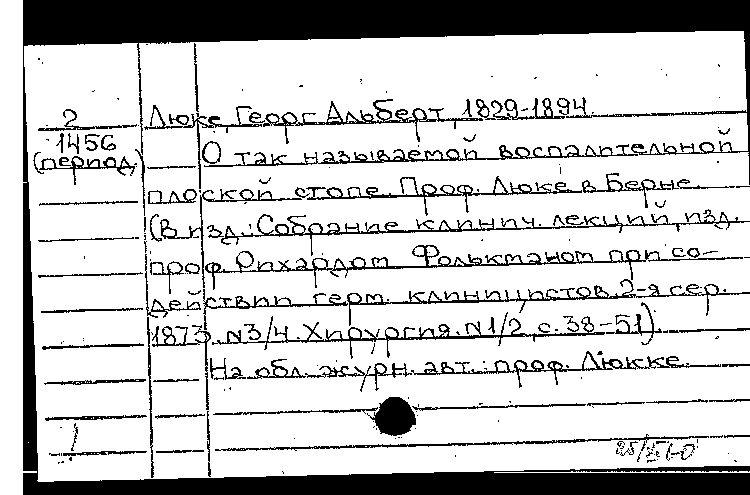 2 Люке, Георг Альберт, 1829-1894
1456 О так называемой воспалительной
(период) плоской стопе. Проф. Люке в Берне.
(В изд.: Собрание клинич. лекций, изд.
проф. Рихардом Фолькманом при со-
действии герм. клиницистов. 2-я сер.
1873. N3/4. Хирургия. N1/2, с. 38-51).
На обл. журн. авт.: проф. Люкке.